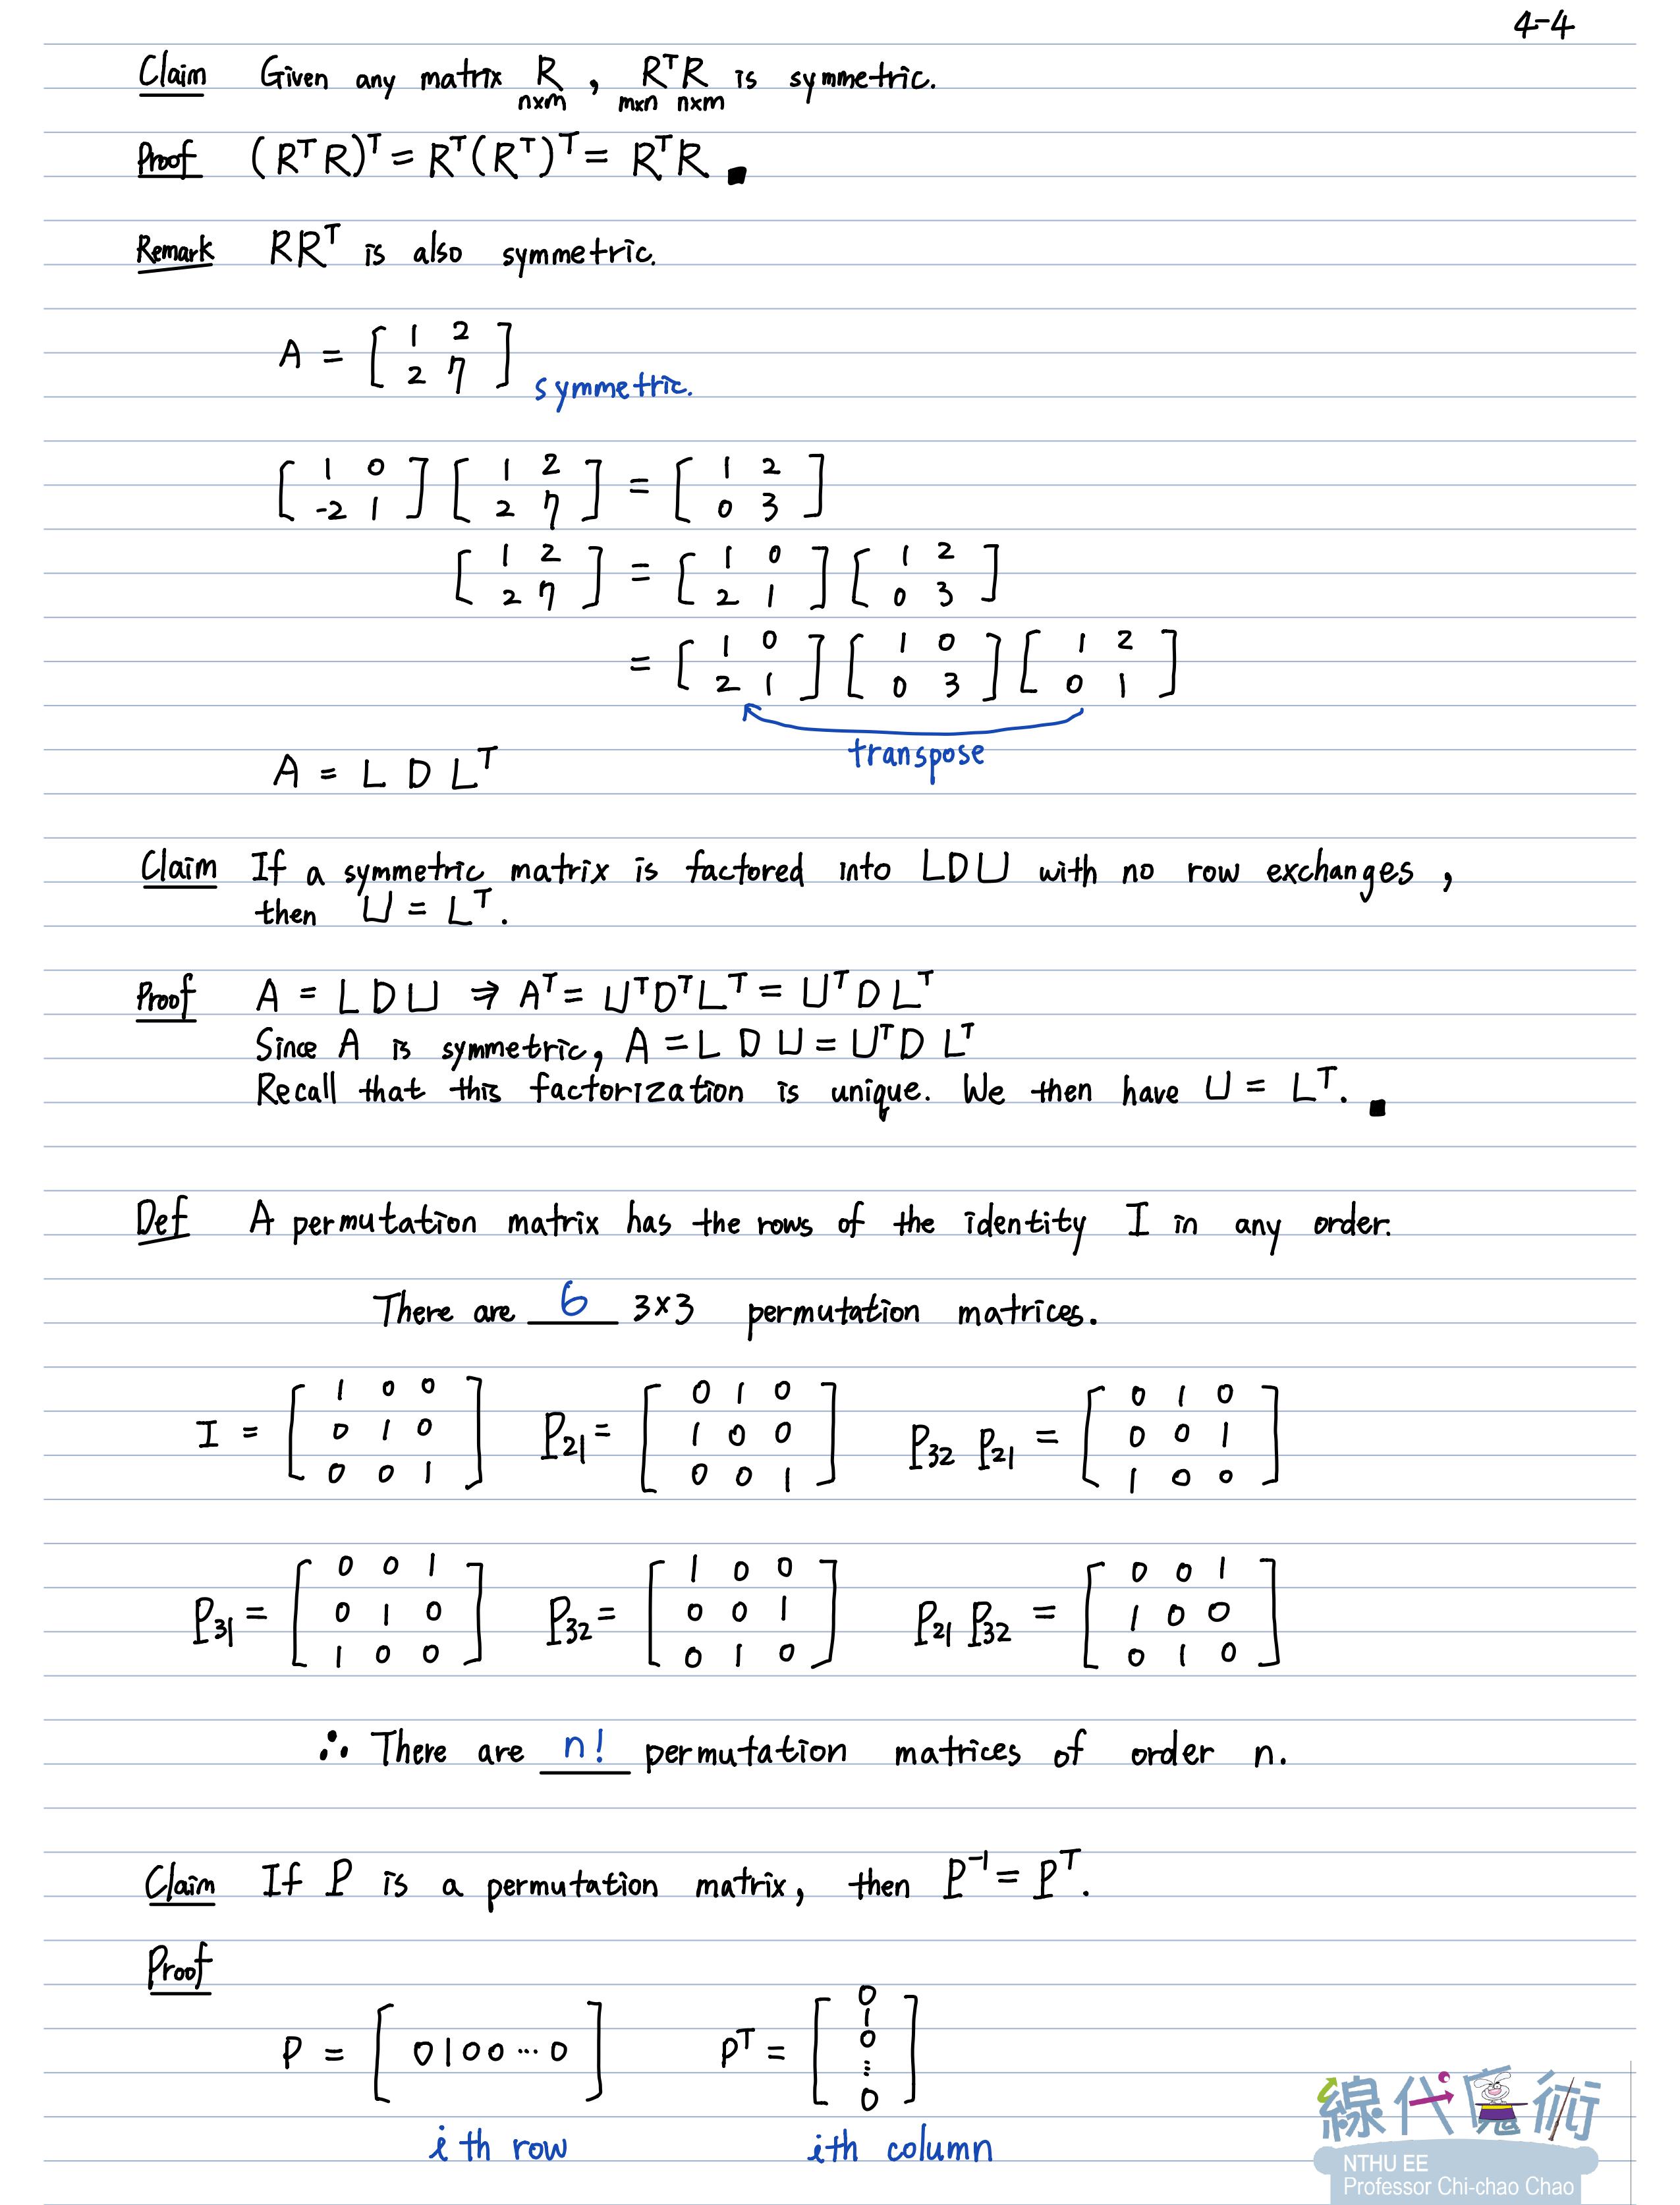 4-4
Claim Given any matrix R , RᵀR is symmetric.
n×m m×n n×m
Proof (RᵀR)ᵀ = Rᵀ(Rᵀ)ᵀ = RᵀR ■
Remark RRᵀ is also symmetric.
A = [ 1 2
2 7 ] symmetric.
[ 1 0 ] [ 1 2 ] = [ 1 2 ]
[ -2 1 ] [ 2 7 ] [ 0 3 ]
[ 1 2 ] = [ 1 0 ] [ 1 2 ]
[ 2 7 ] [ 2 1 ] [ 0 3 ]
= [ 1 0 ] [ 1 0 ] [ 1 2 ]
[ 2 1 ] [ 0 3 ] [ 0 1 ]
transpose
A = L D Lᵀ
Claim If a symmetric matrix is factored into LDU with no row exchanges ,
then U = Lᵀ.
Proof A = L D U ⇒ Aᵀ = UᵀDᵀLᵀ = UᵀD Lᵀ
Since A is symmetric, A = L D U = UᵀD Lᵀ
Recall that this factorization is unique. We then have U = Lᵀ. ■
Def A permutation matrix has the rows of the identity I in any order.
There are 6 3×3 permutation matrices.
[ 1 0 0 ] [ 0 1 0 ] [ 0 1 0 ]
I = [ 0 1 0 ] P₂₁ = [ 1 0 0 ] P₃₂ P₂₁ = [ 0 0 1 ]
[ 0 0 1 ] [ 0 0 1 ] [ 1 0 0 ]
[ 0 0 1 ] [ 1 0 0 ] [ 0 0 1 ]
P₃₁ = [ 0 1 0 ] P₃₂ = [ 0 0 1 ] P₂₁ P₃₂ = [ 1 0 0 ]
[ 1 0 0 ] [ 0 1 0 ] [ 0 1 0 ]
∴ There are n! permutation matrices of order n.
Claim If P is a permutation matrix, then P⁻¹ = Pᵀ.
Proof
P = [ 0 1 0 0 ⋯ 0 ] Pᵀ = [ 0
1
0
⋮
0 ]
i th row ith column
線代魔術
NTHU EE
Professor Chi-chao Chao